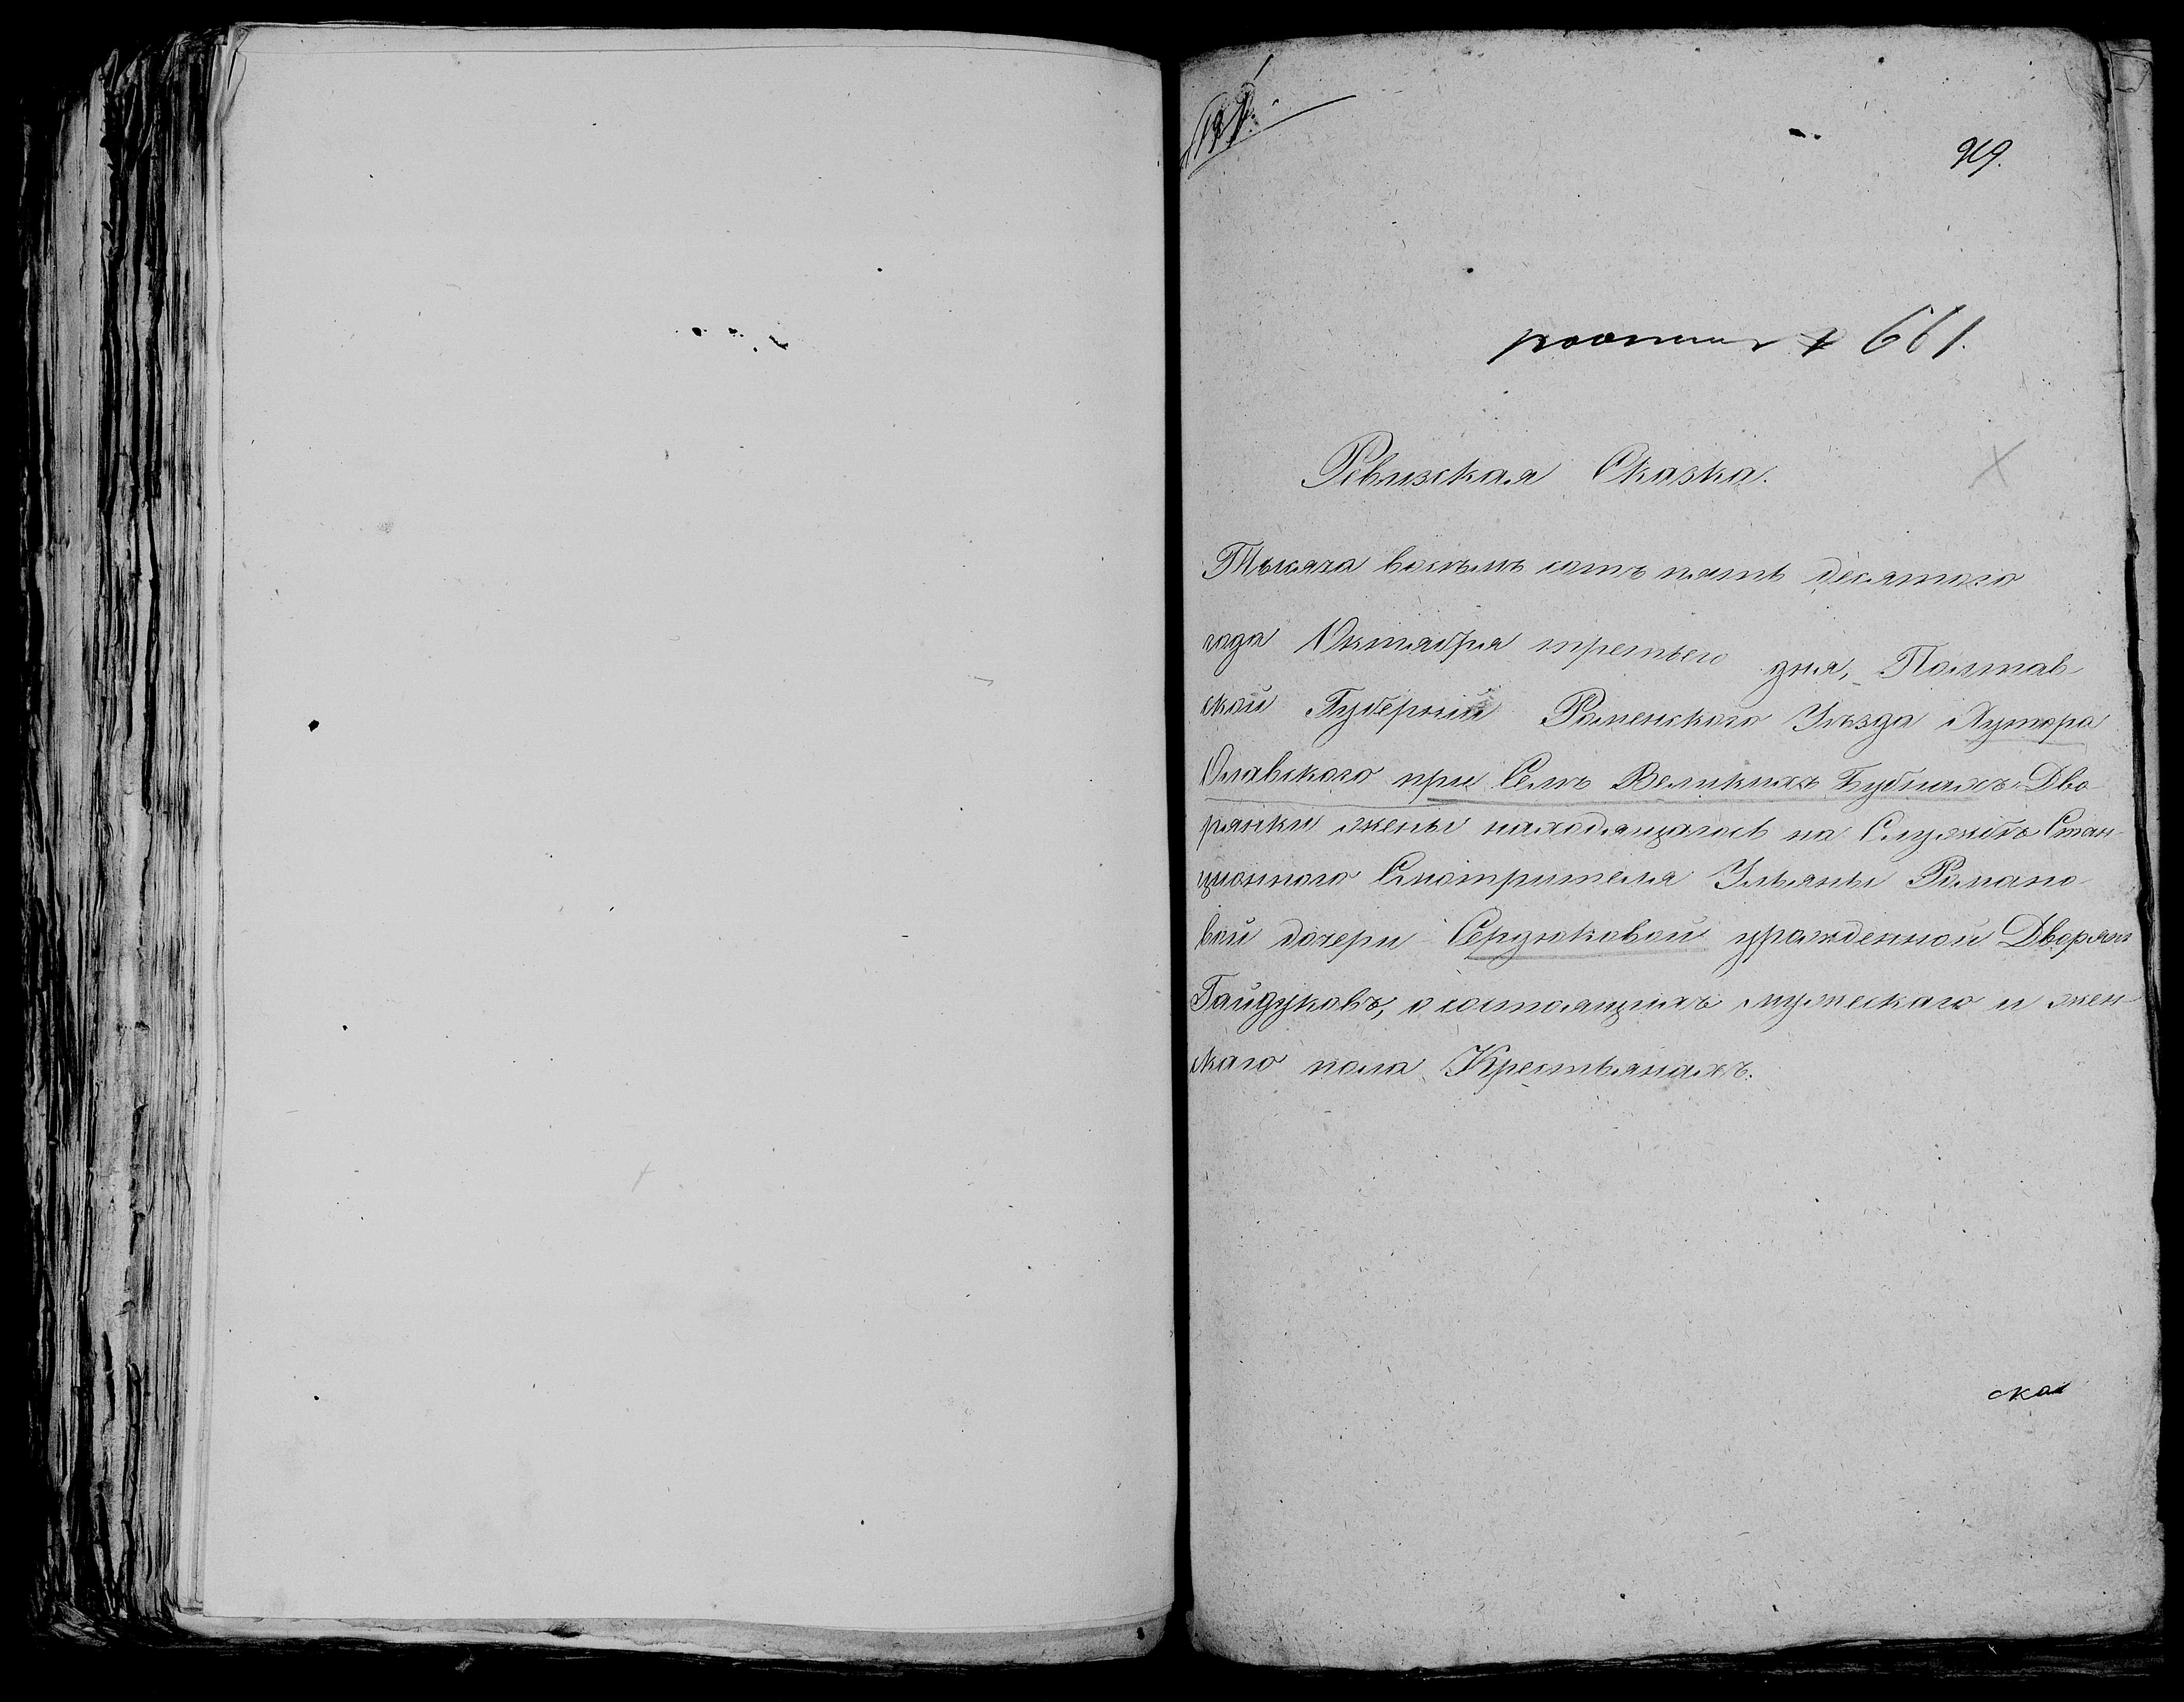 661.
Ревизская Сказка.
Тысяча восемь сотъ пять десятого
года Октября третьего дня, Полтав
ской Губерніи Роменского Уѣзда Хутора
при Селѣ Великихъ Бубнахъ Дво
рянки жены находящагося на Службѣ Стан-
ціонного Смотрителя Ульяны Романо
вой дочери Сердюковой урожденной Дворян
Гайдуковъ, о состоящихъ мужеского и жен
ского пола Крестьянахъ.
ска